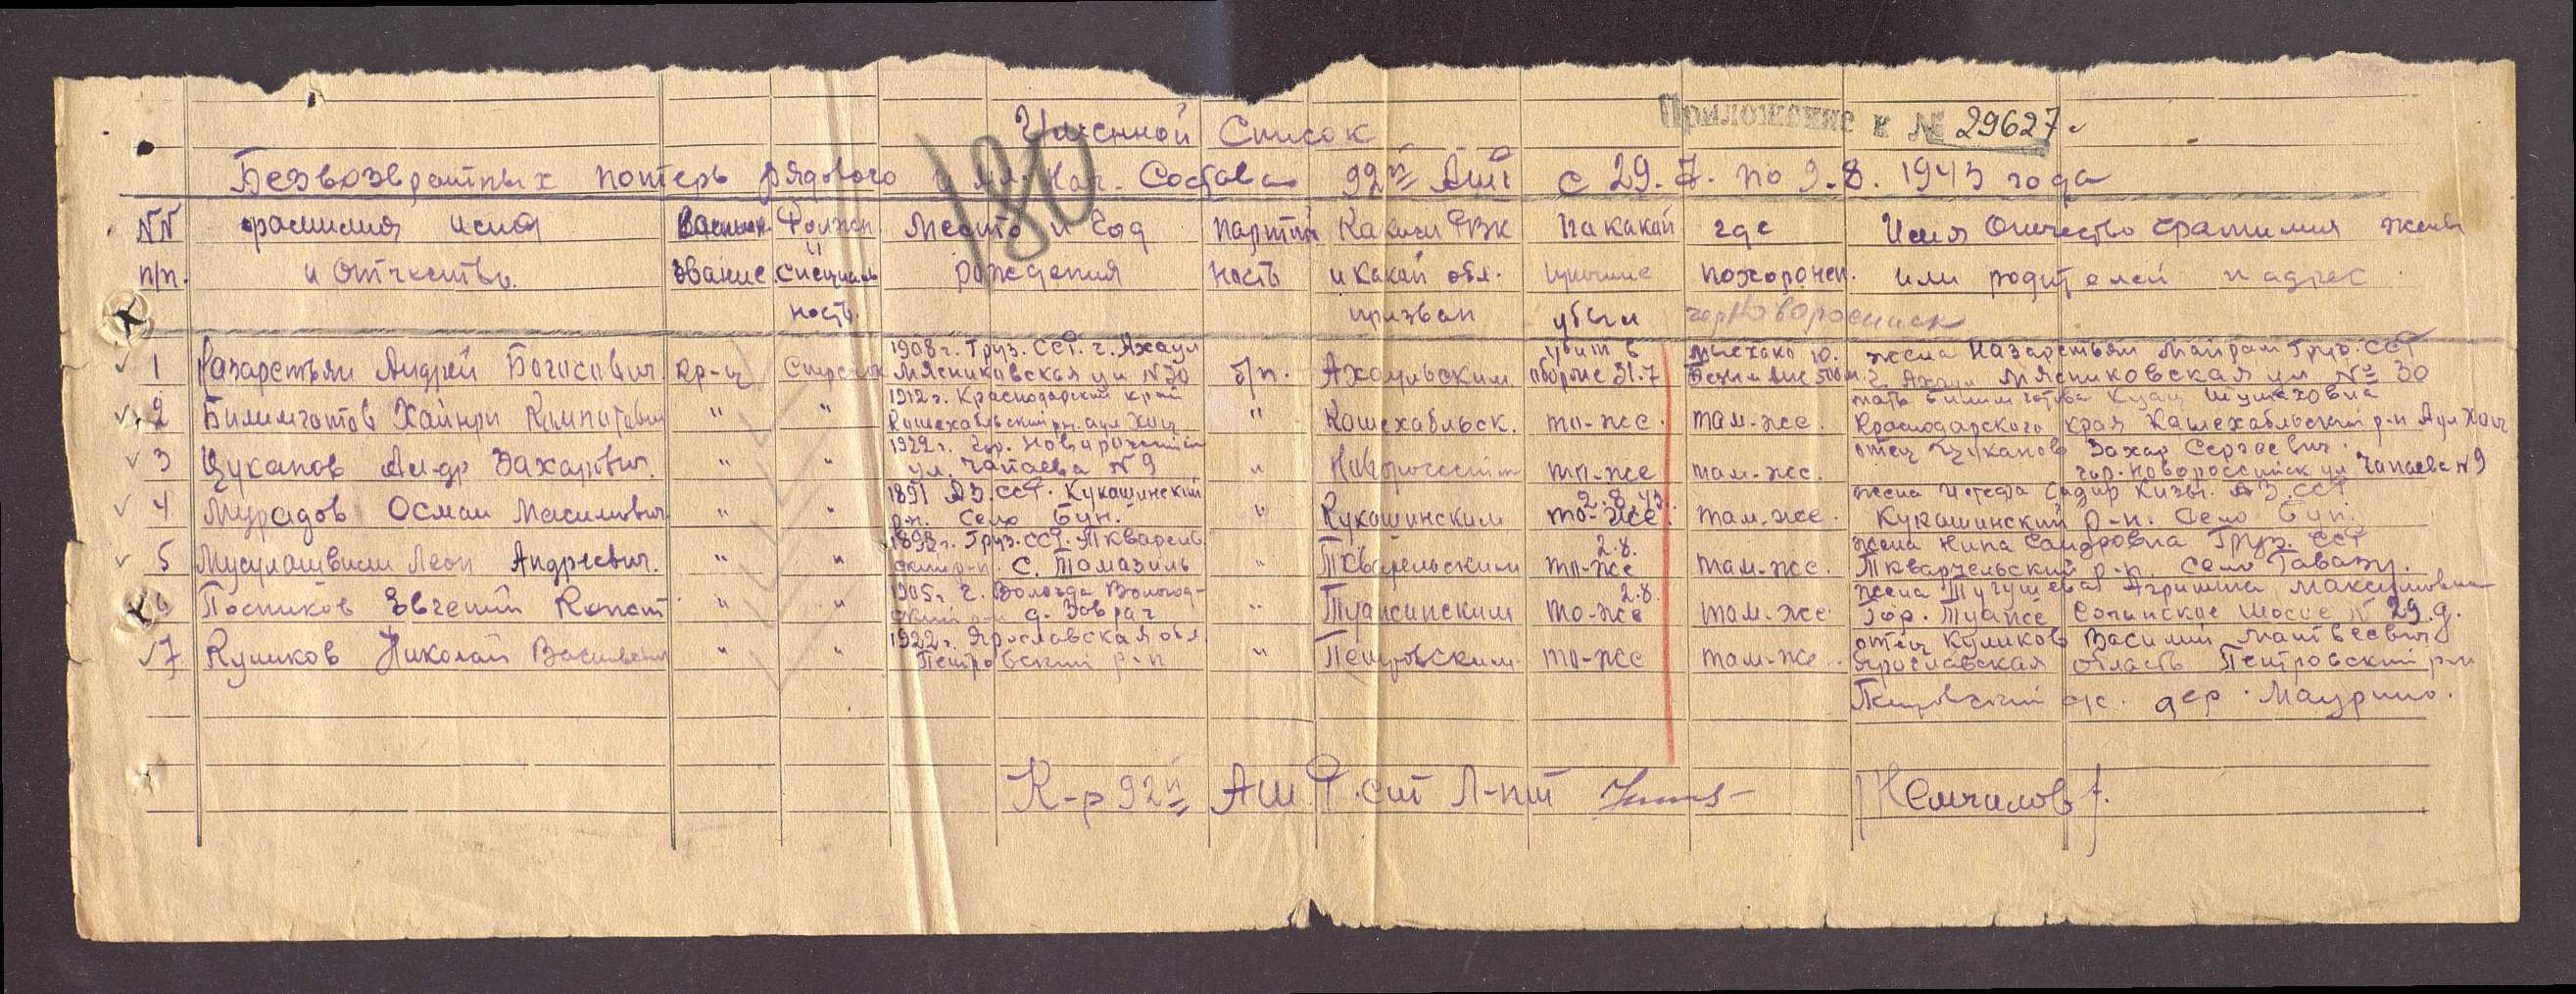 Приложение к № 29627
Именной Список
180
Безвозвратных потерь рядового и мл. нач. Состава 92й АШР с 29.7. по 9.8. 1943 года
NN фамилия имя Воинск. Должн. Место и Год партий Каким РВК На какой где Имя Отчество Фамилия жены
п/п. и отчество. звание. специаль Рождения ность и какой обл. причине похоронен. или родителей и адрес
ность. призван убыл гор Новоросийск
1908 г. Груз. ССР. г. Ахаул убит в Мысхако 10. жена Назаретьян Майрам Груз. ССР
1 Назаретьян Андрей Богосович кр-ц Стрелок Мясниковская ул N 30 б/п. Ахаульским обороне 31.7 Безымяне 500 м. г. Ахаул Мясниковская ул № 30
1912 г. Краснодарский край мать
2 " " Кошехабльский рн. аул Хач " Кошехабльск. то-же. там-же. Краснодарского края Кашехабльский р-н Аул Хач
1922 г. Гор. Новоросийск отец Цуканов Захар Сергеевич.
3 Цуканов Ал-др Захарович. " " ул. Чапаева N 9 " Новоросийским то-же там-же. гор. Новороссийск ул Чапаева N 9
1891 АЗ. ССР. Кукашинский 2.8.43. жена Кизы. АЗ. ССР
4 Мурадов Осман Масимович " " р-н. Село Бун. " Кукашинским то-же там-же. Кукашинский р-н. Село Бун.
Груз. ССР. Ткварель 2.8. жена Нина Сандровна Груз. ССР
5 Мусулашвили Леон Андреевич. " " ский р-н. С. Томазиль " Ткварельским то-же там-же. Ткварчельский р-н. Село Гавазы.
1905 г г. Вологда Вологод- 2.8. жена Тугушева Агрипина Максимовна
6 Посников Евгений Конст " " ский р-н д. Заврач " Туапсинским то-же там-же Гор. Туапсе Сочинское шоссе N 29.д.
1922 г. Ярославская обл. отец Куликов Василий Матвеевич
7 Куликов Николай Васильевич " " Петровский р-н " Петровским. то-же там-же. Ярославская область Петровский р-н
Петровский с/с. дер. Маурино.
К-р 92й АШР. ст Л-нт